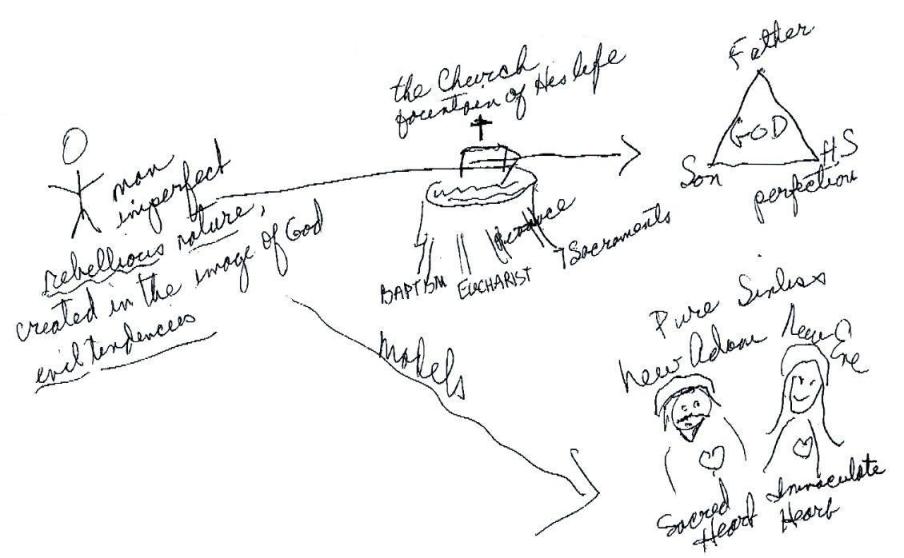 Father
the Church
fountain of His life
GOD
Son
HS
perfection
man
imperfect
rebellious nature,
created in the image of God
evil tendencies
BAPTISM
EUCHARIST
penance
7 Sacraments
Models
Pure Sinless
New Adam
New Eve
Sacred
Heart
Immaculate
Heart